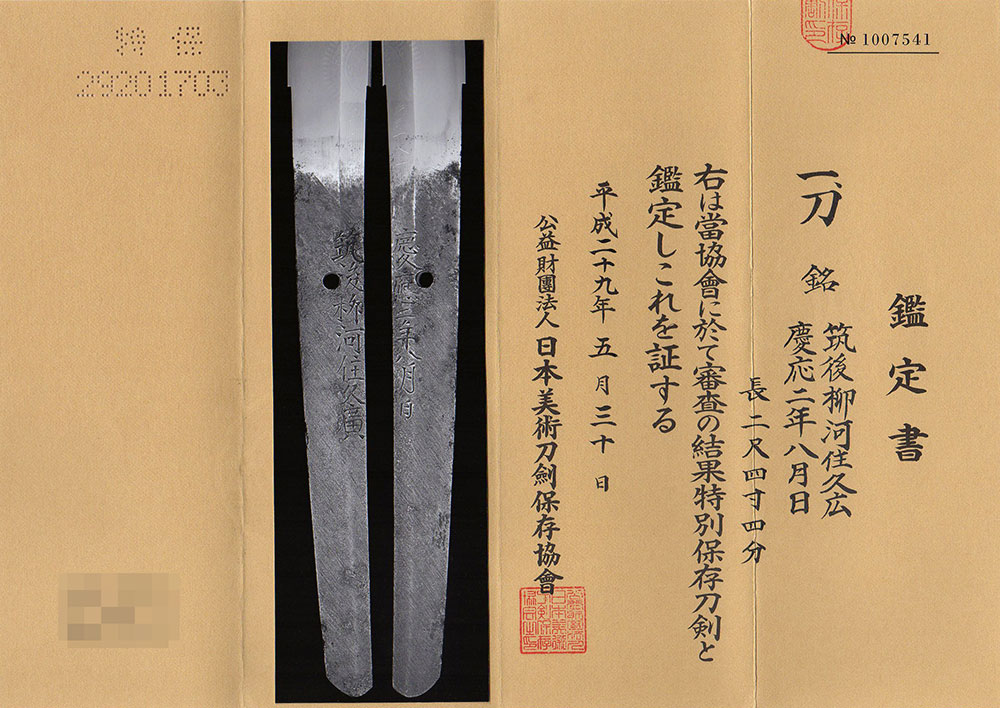 № 1007541
鑑定書
一、刀 銘 筑後柳河住久広
慶応二年八月日
長二尺四寸四分
右は當協會に於て審査の結果特別保存刀剣と
鑑定しこれを証する
平成二十九年五月三十日
公益財團法人日本美術刀劍保存協會
慶應二年八月日
筑後柳河住久廣
特保
29201703